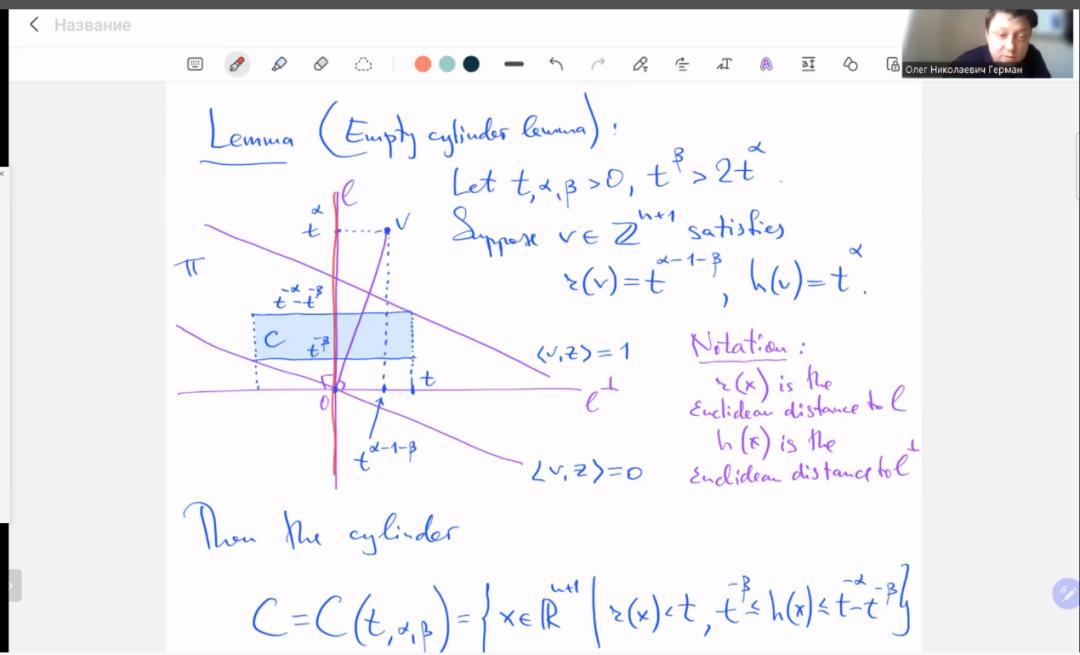 Название
Олег Николаевич Герман
Lemma (Empty cylinder lemma):
Let t, α, β > 0, t^β > 2t^α.
Suppose v ∈ ℤ^{n+1} satisfies
r(v) = t^{α-1-β}, h(v) = t^α.
ℓ
t^α
v
π
t^{-α} - t^{-β}
C
t^{-β}
⟨v,z⟩ = 1
t
ℓ^⊥
0
t^{α-1-β}
⟨v,z⟩ = 0
Notation:
r(x) is the
Euclidean distance to ℓ
h(x) is the
Euclidean distance to ℓ^⊥
Then the cylinder
C = C(t, α, β) = { x ∈ ℝ^{n+1} | r(x) < t, t^{-β} ≤ h(x) ≤ t^{-α} - t^{-β} }